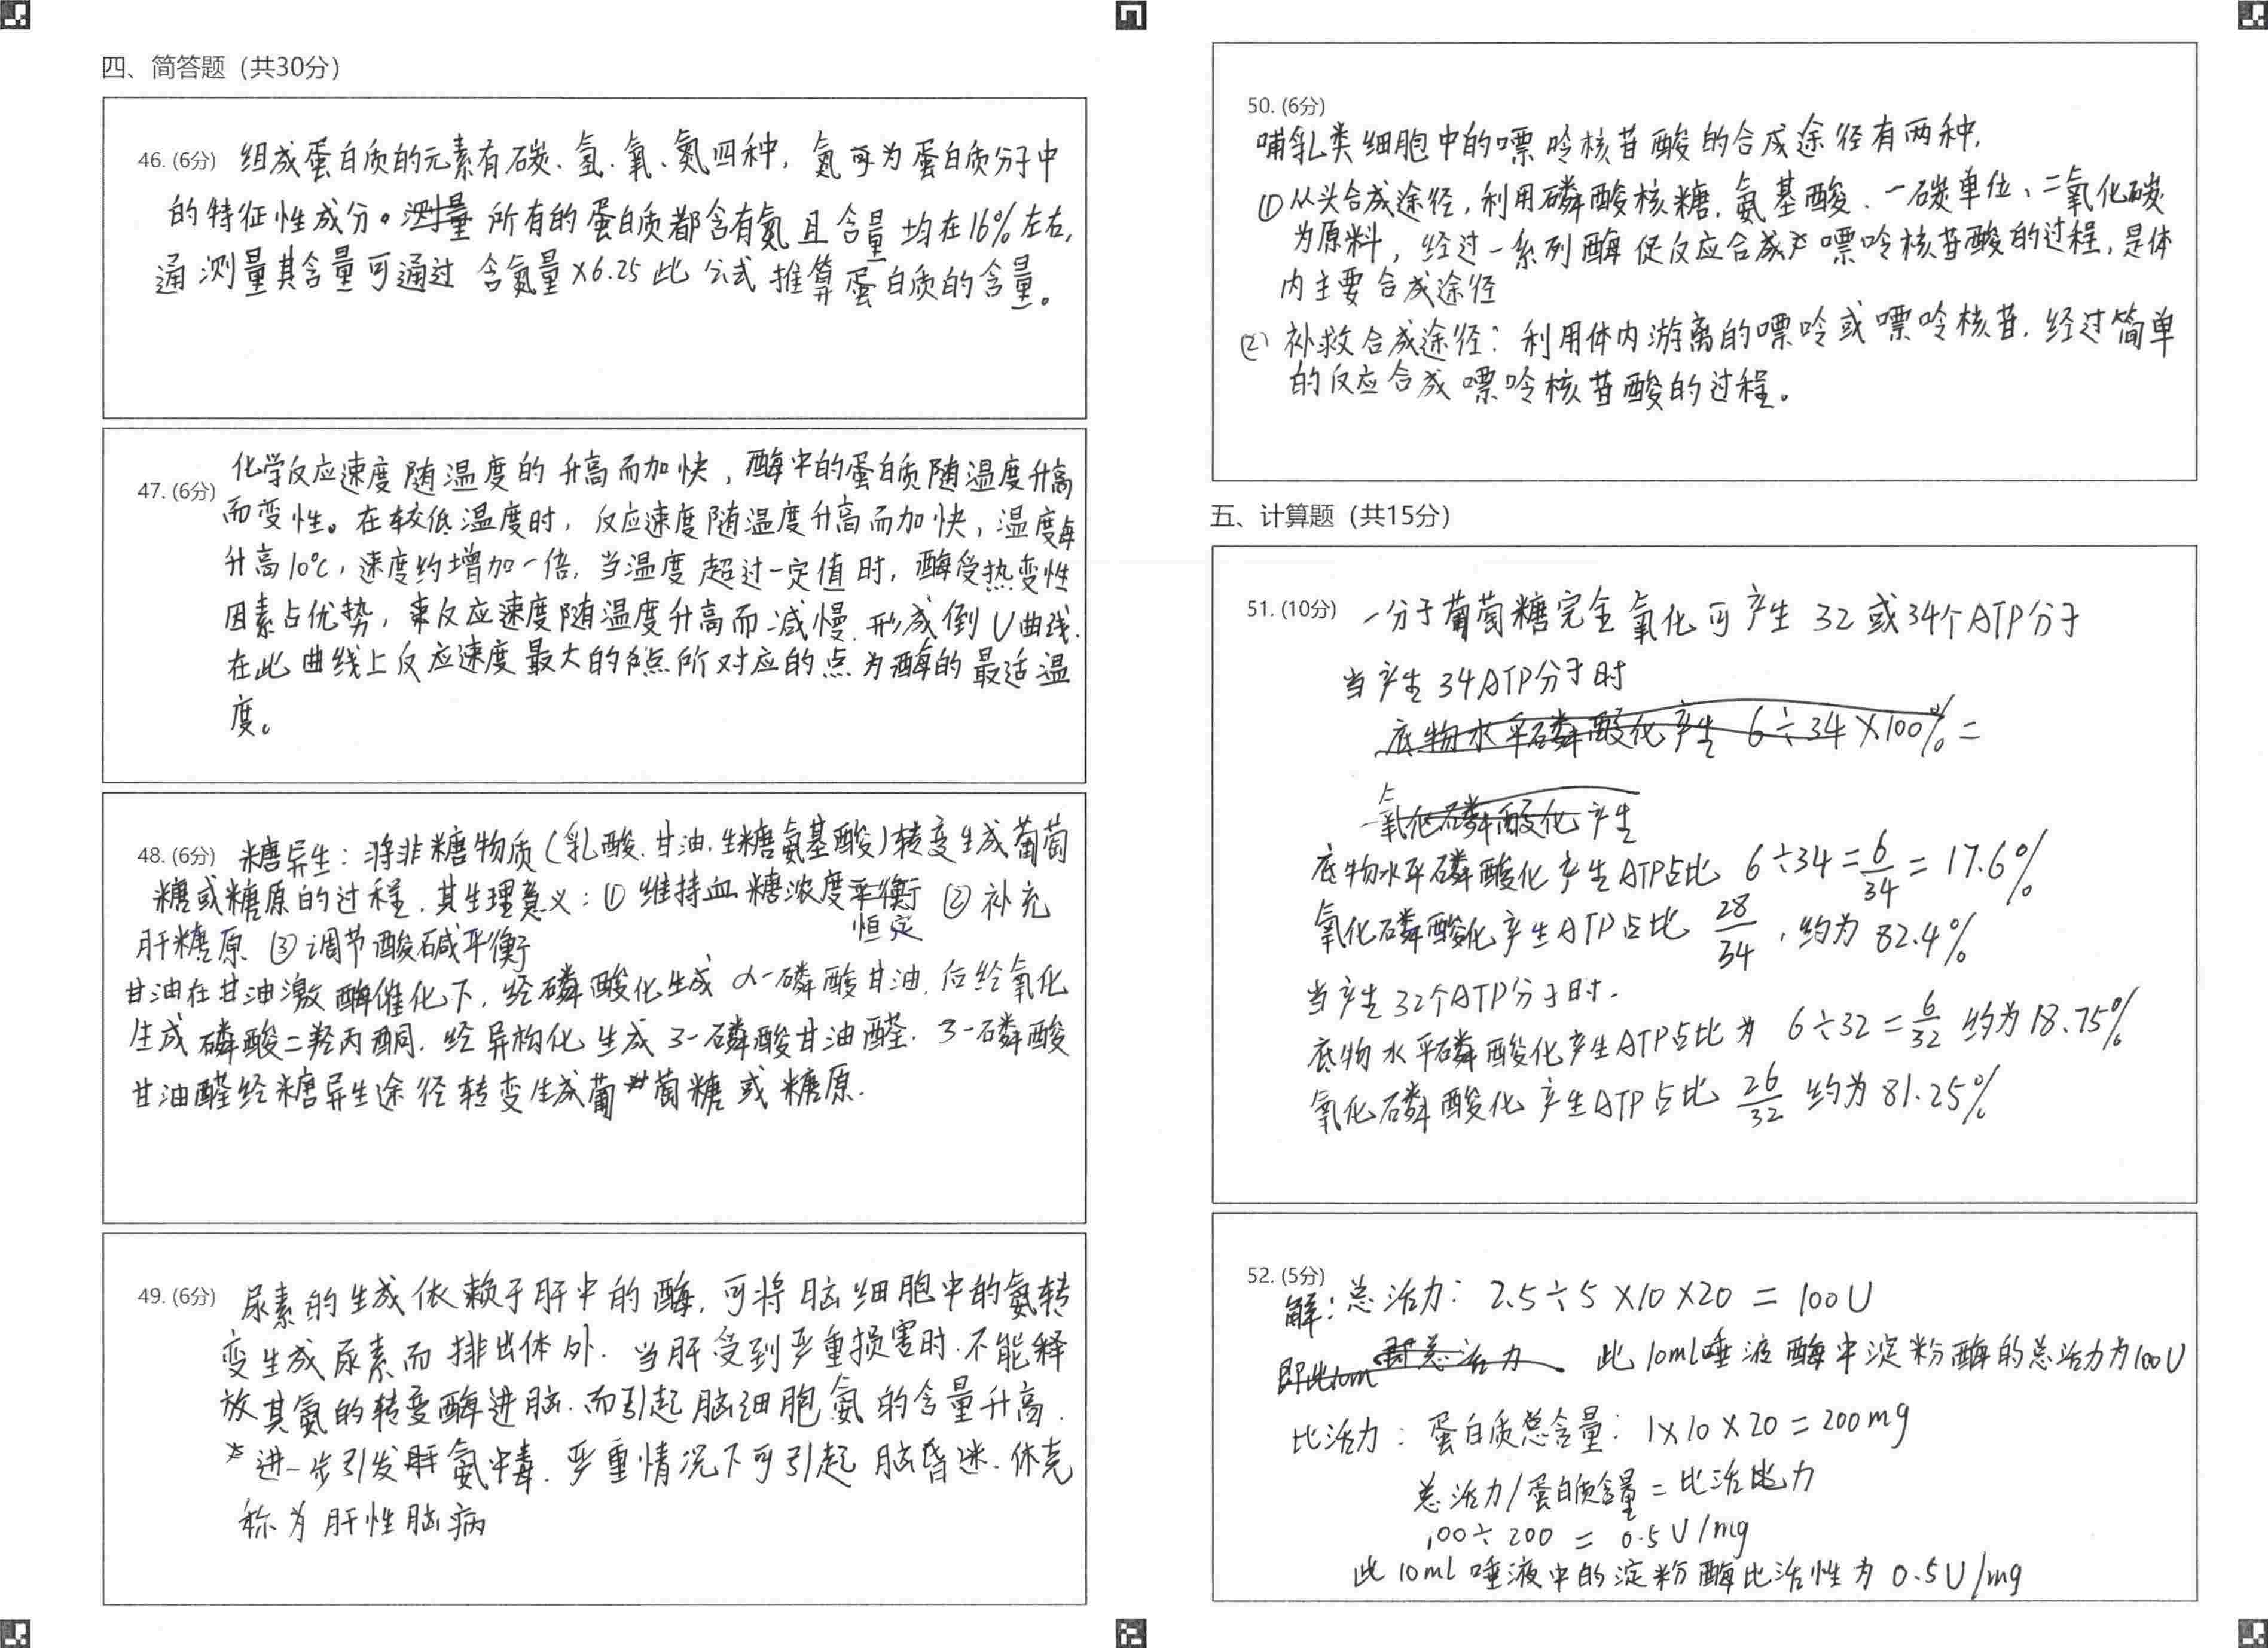 四、简答题（共30分）
46. (6分) 组成蛋白质的元素有碳、氢、氧、氮四种，氮可为蛋白质分子中
的特征性成分。测量 所有的蛋白质都含有氮且含量均在16%左右,
通测量其含量可通过 含氮量×6.25此公式推算蛋白质的含量。
化学反应速度随温度的升高而加快，酶中的蛋白质随温度升高
47. (6分) 而变性。在较低温度时，反应速度随温度升高而加快，温度每
升高10℃，速度约增加一倍，当温度超过一定值时，酶受热变性
因素占优势，反应速度随温度升高而减慢，形成倒U曲线.
在此曲线上反应速度最大的点所对应的点为酶的最适温
度。
48. (6分) 糖异生：将非糖物质(乳酸.甘油.生糖氨基酸)转变生成葡萄
糖或糖原的过程.其生理意义：① 维持血糖浓度平衡 ②补充
恒定
肝糖原 ③调节酸碱平衡
甘油在甘油激酶催化下，经磷酸化生成α-磷酸甘油.后经氧化
生成磷酸二羟丙酮.经异构化生成3-磷酸甘油醛.3-磷酸
甘油醛经糖异生途径转变生成葡萄糖或糖原.
49. (6分) 尿素的生成依赖于肝中的酶，可将脑细胞中的氨转
变生成尿素而排出体外.当肝受到严重损害时.不能释
放其氨的转变酶进脑.而引起脑细胞氨的含量升高.
进一步引发肝氨中毒.严重情况下可引起脑昏迷.休克
称为肝性脑病
50. (6分)
哺乳类细胞中的嘌呤核苷酸的合成途径有两种,
①从头合成途径，利用磷酸核糖.氨基酸、一碳单位、二氧化碳
为原料，经过一系列酶促反应合成嘌呤核苷酸的过程，是体
内主要合成途径
(2) 补救合成途径：利用体内游离的嘌呤或嘌呤核苷.经过简单
的反应合成嘌呤核苷酸的过程。
五、计算题（共15分）
51. (10分) 一分子葡萄糖完全氧化可产生32或34个ATP分子
当产生34ATP分子时
底物水平磷酸化产生 6÷34×100% =
氧化磷酸化产生
底物水平磷酸化产生ATP占比 6÷34=6/34=17.6%
氧化磷酸化产生ATP占比 28/34，约为82.4%
当产生32个ATP分子时.
底物水平磷酸化产生ATP占比为 6÷32=6/32 约为18.75%
氧化磷酸化产生ATP占比 26/32 约为81.25%
52. (5分)
解：总活力：2.5÷5×10×20=100U
即此10ml 即总活力 此10ml唾液酶中淀粉酶的总活力为100U
比活力：蛋白质总含量：1×10×20=200mg
总活力/蛋白质含量=比活力
100÷200 = 0.5U/mg
此10ml唾液中的淀粉酶比活性为0.5U/mg